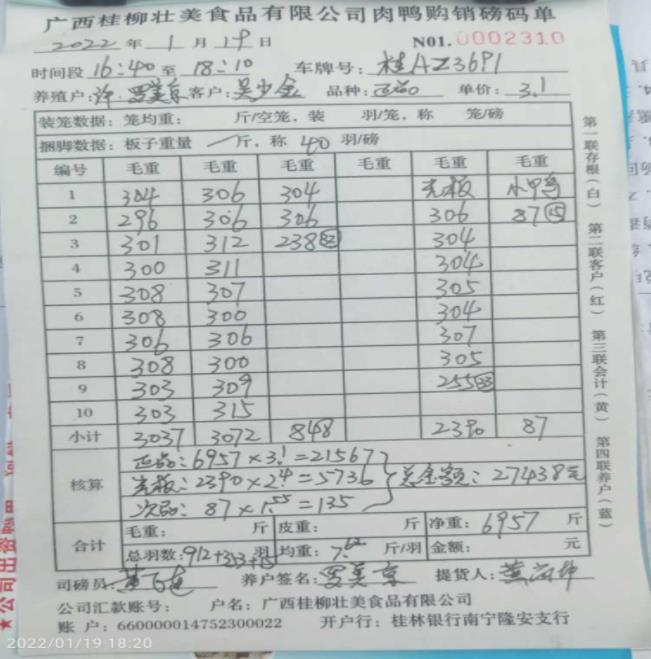 广西桂柳壮美食品有限公司肉鸭购销磅码单
2022 年 1 月 19 日 N01. 0002310
时间段 16:40 至 18:10 车牌号: 桂AZ3691
养殖户: 罗美京 客户: 吴少金 品种: 正品 单价: 3.1
装笼数据: 笼均重: 斤/空笼, 装 羽/笼, 称 笼/磅
捆脚数据: 板子重量 斤, 称 40 羽/磅
编号 毛重 毛重 毛重 毛重 毛重 毛重
1 304 306 304 光板 小鸭
2 296 306 306 306 87 15
3 301 312 238 304
4 300 311 304
5 308 307 305
6 308 300 304
7 306 306 307
8 308 300 305
9 303 309 255 33
10 303 315
小计 3037 3072 848 2390 87
核算
正品: 6957×3.1=21567
光板: 2390×2.4=5736
次品: 87×1.55=135
总金额: 27438元
合计
毛重: 斤 皮重: 斤 净重: 6957 斤
总羽数: 912+313+15 羽 均重: 7.62 斤/羽 金额: 元
司磅员: 养户签名: 罗美京 提货人:
公司汇款账号: 户名: 广西桂柳壮美食品有限公司
账 户: 660000014752300022 开户行: 桂林银行南宁隆安支行
第一联存根(白) 第二联客户(红) 第三联会计(黄) 第四联养户(蓝)
2022/01/19 18:20